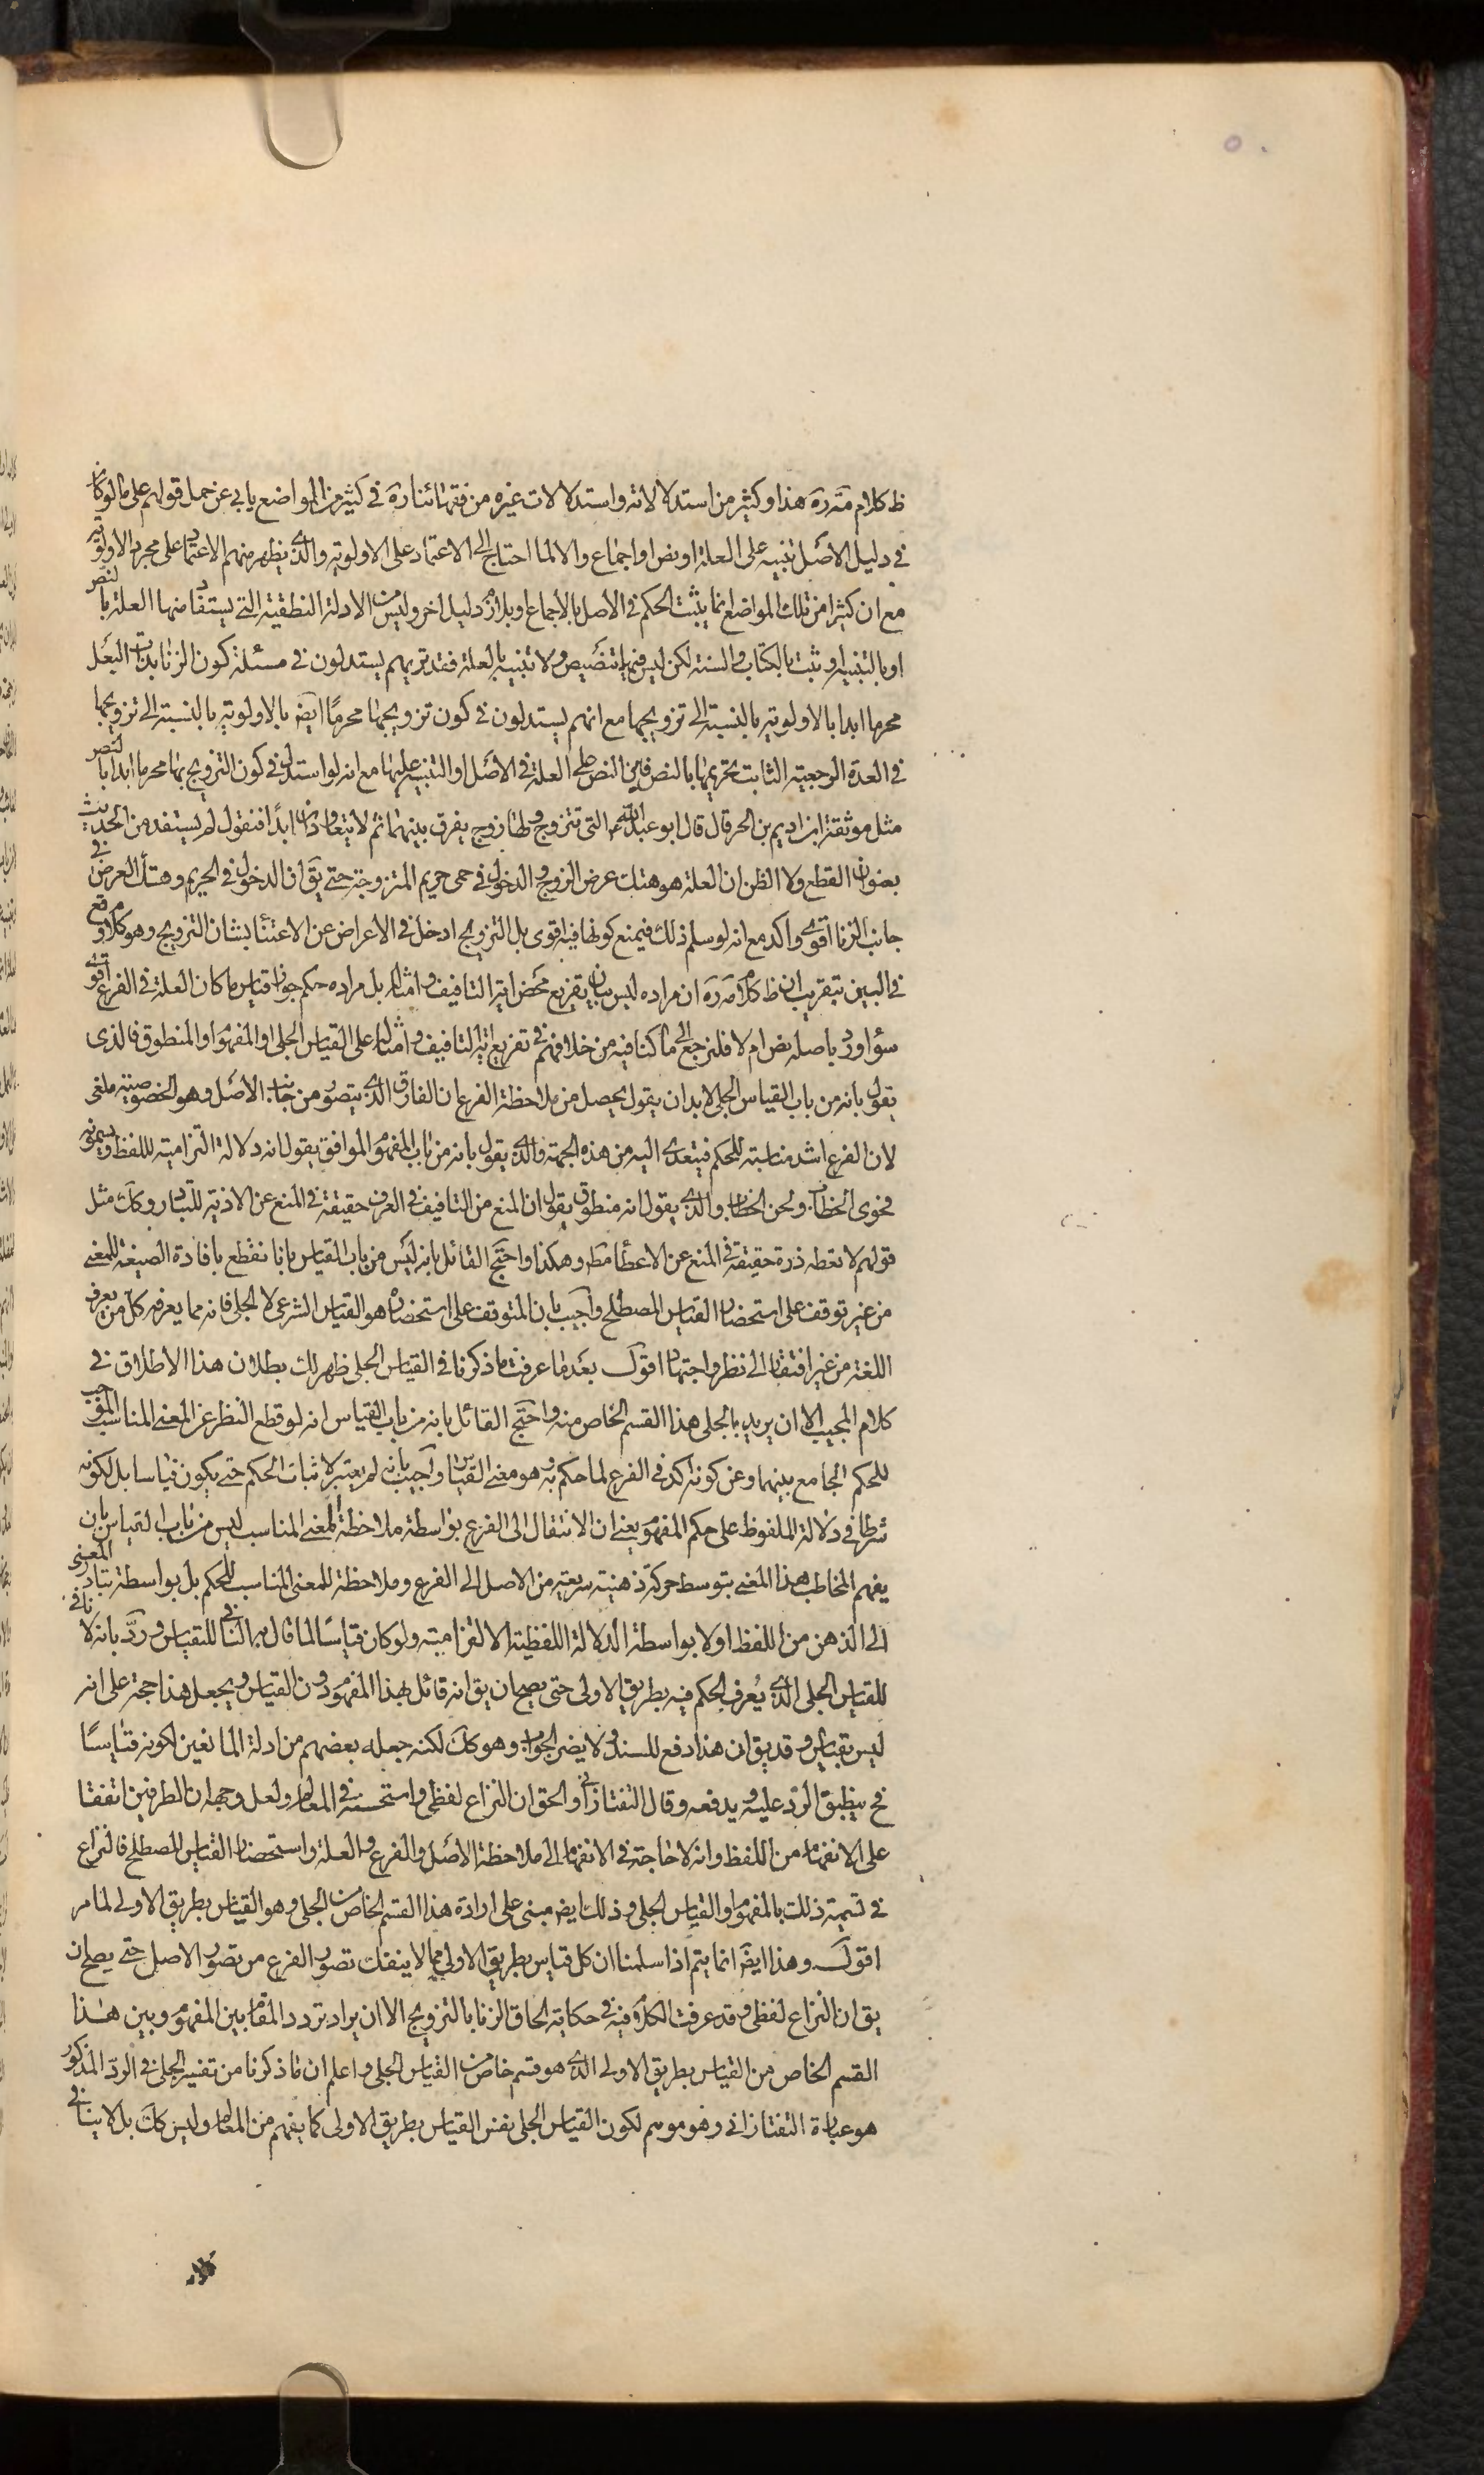 ظ كلام مة ره هذا وكثير من استدلالاته واستدلالات غيره من فقهائنا ره في كثير من المواضع يابى عن حمل قولهم على ما لو كان
في دليل الاصل تنبيه على العلة او نص او اجماع والا لما احتاج الى الاعتماد على الاولوية والذي يظهر منهم الاعتماد على مجرد الاولوية
مع ان كثيرا من تلك المواضع انما يثبت الحكم في الاصل بالاجماع او دليل اخر وليس من الادلة النطقية التي يستفاد منها العلة بالنص
او بالتنبيه او ثبت بالكتاب والسنة لكن ليس فيها تنصيص ولا تنبيه بالعلة فقد تريهم يستدلون في مسئلة كون الزنا بذات البعل
محرما ابدا بالاولوية بالنسبة الى تزويجها مع انهم يستدلون في كون تزويجها محرمًا ايض بالاولوية بالنسبة الى تزويجها
في العدة الرجعية الثابت تحريمها بالنص فاين النص على العلة في الاصل او التنبيه عليها مع انه لو استدل في كون التزويج بها محرما ابدا بالنص
مثل موثقة ابن اديم بن الحر قال قال ابو عبد الله التي تتزوج ولها زوج يفرق بينهما ثم لا يتعاودان ابدًا فنقول لم يستفد من الحديث
بعنوان القطع ولا الظن ان العلة هو هتك عرض الزوج والدخول في حمى حريم المتزوجة حتى يق ان الدخول في الحريم وهتك العرض في
جانب الزنا اقوى واكد مع انه لو سلم ذلك فيمنع كونها فيه اقوى بل التزويج ادخل في الاعراض عن الاعتناء بشان التزويج وهو كلام وقع
في البين بتقريب ان ظ كلامه ره ان مراده ليس بيان تفريع محض اية التافيف وامثاله بل مراده حكم جواز قياس ما كان العلة في الفرع اقوى
سواء ورد باصله نص ام لا فلنرجع الى ما كنا فيه من خلافهم في تفريع اية التافيف وامثاله على القياس الجلي او المفهوم او المنطوق فالذى
يقول بانه من باب القياس الجلي لا بد ان يقول يحصل من ملاحظة الفرع ان الفارق الذي يتصور من جانب الاصل وهو الخصوصية ملغى
لان الفرع اشد مناسبة للحكم فيتعدى اليه من هذه الجهة والذي يقول بانه من باب المفهوم الموافق يقول انه دلالة التزامية للفظ ويسمونه
فحوى الخطاب ولحن الخطاب والذي يقول انه منطوق يقول ان المنع من التافيف في العرف حقيقة في المنع عن الاذية للتبادر وكك مثل
قولهم لا تعطه ذرة حقيقة في المنع عن الاعطاء مط وهكذا واحتج القائل بانه ليس من باب القياس بانا نقطع بافادة الصيغة للمعنى
من غير توقف على استحضار القياس المصطلح واجيب بان المتوقف على استحضاره هو القياس الشرعي لا الجلي فانه مما يعرفه كل من يعرف
اللغة من غير افتقار الى نظر واجتهاد اقول بعد ما عرفت ما ذكرنا في القياس الجلي ظهر لك بطلان هذا الاطلاق في
كلام المجيب الا ان يريد بالجلي هذا القسم الخاص منه واحتج القائل بانه من باب القياس انه لو قطع النظر عن المعنى المناسب الموجب
للحكم الجامع بينهما وعن كونه اكد في الفرع لما حكم به وهو معنى القياس واجيب بانه لم يعتبر لاثبات الحكم حتى يكون قياسا بل لكونه
شرطا في دلالة الملفوظ على حكم المفهوم يعنى ان الانتقال الى الفرع بواسطة ملاحظة المعنى المناسب ليس من باب القياس بان
يفهم المخاطب هذا المعنى بتوسط حركة ذهنية سريعة من الاصل الى الفرع وملاحظة للمعنى المناسب للحكم بل بواسطة تبادر المعنى
الى الذهن من اللفظ اولا بواسطة الدلالة اللفظية الالتزامية ولو كان قياسًا لما قال بها النافي للقياس ورد بانه لا نافي
للقياس الجلي الذي يُعرف الحكم فيه بطريق الاولى حتى يصح ان يق انه قائل بهذا المفهوم دون القياس ويجعل هذا حجة على انه
ليس بقياس وقد يق ان هذا دفع للسند ولا يضر الجواب وهو كك لكنه جعله بعضهم من ادلة المانعين لكونه قياسًا
فح ينطبق الرد عليه ويدفعه وقال التفتازاني والحق ان النزاع لفظي واستحسنه في المعالم ولعل وجهه ان الطرفين اتفقا
على الانفهام من اللفظ وانه لا حاجة في الانفهام الى ملاحظة الاصل والفرع والعلة واستحضار القياس المصطلح فالنزاع
في تسمية ذلك بالمفهوم او القياس الجلي وذلك ايض مبني على ارادة هذا القسم الخاص من الجلي وهو القياس بطريق الاولى لما مر
اقول وهذا ايض انما يتم اذا سلمنا ان كل قياس بطريق الاولى مما لا ينفك تصور الفرع من تصور الاصل حتى يصلح ان
يق ان النزاع لفظي وقد عرفت الكلام فيه في حكاية الحاق الزنا بالتزويج الا ان يراد تردد المقام بين المفهوم وبين هذا
القسم الخاص من القياس بطريق الاولى الذي هو قسم خاص من القياس الجلي واعلم ان ما ذكرنا من تفسير الجلي في الرد المذكور
هو عبارة التفتازاني وهو موهم لكون القياس الجلي نفس القياس بطريق الاولى كما يفهم من المعالم وليس كك بل لا ينافي